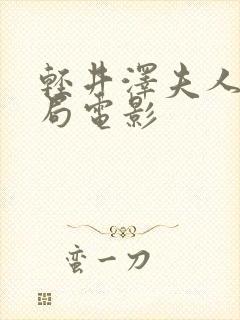 輕井澤夫人
局電影
蛮一刀